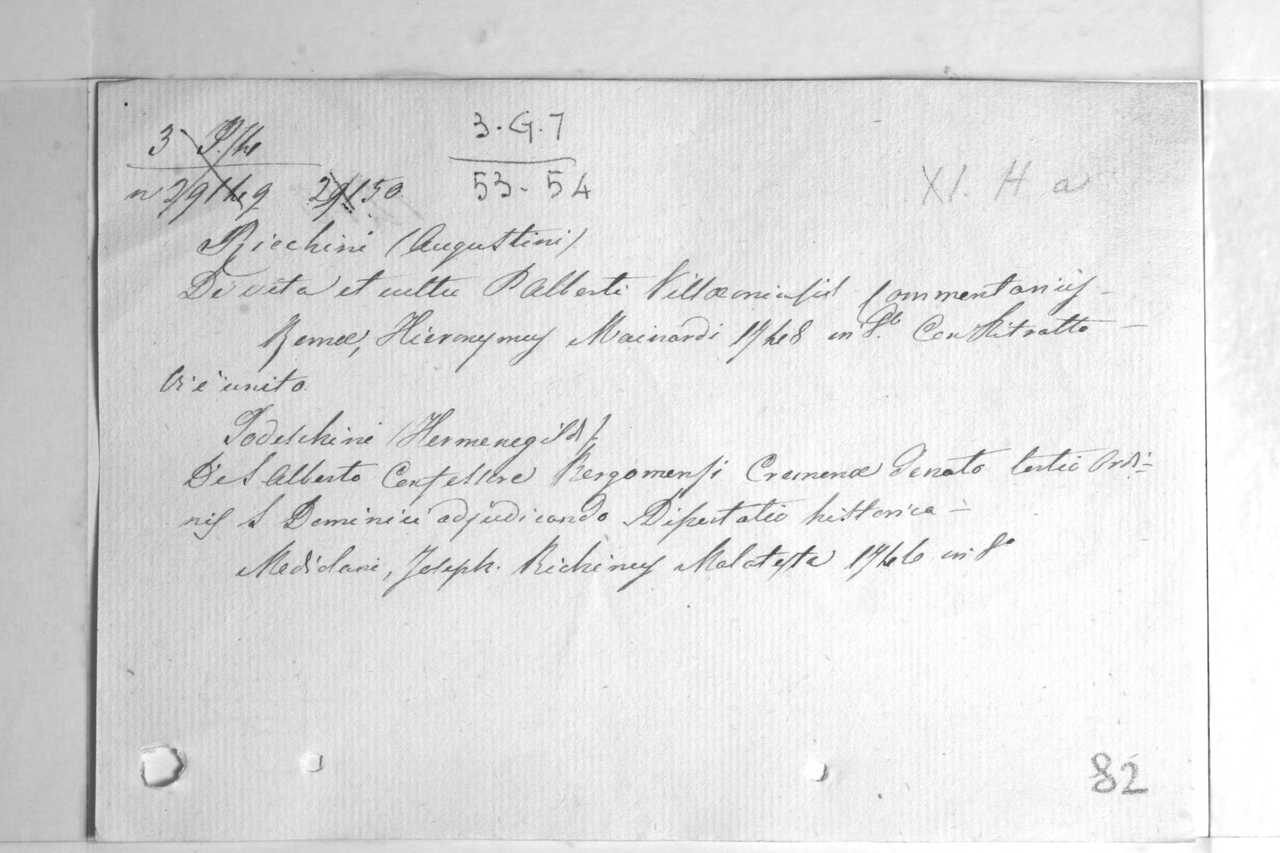 3 P. 4
3. G. 7
n 29149 29150
53 - 54
XI. H a
Ricchini (Augustini)
De vita et cultu B Alberti Villaconiensis Commentarius -
Romae, Hieronymus Mainardi 1748 in 8.o Con Ritratto -
Vi è unito
Todeschini (Hermenegildi)
De S Alberto Confessore Bergomensi Cremonae Denato tertio Ordi-
nis S Dominici adjudicando Dissertatio historica -
Mediolani, Joseph Richinus Malatesta 1746 in 8o
82